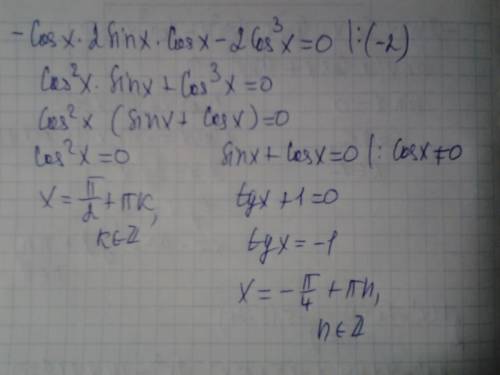 -Cosx·2Sinx·Cosx-2Cos³x=0 |:(-2)
Cos²x·Sinx+Cos³x=0
Cos²x (Sinx+Cosx)=0
Cos²x=0
x=π/2+πk,
k∈Z
Sinx+Cosx=0 |: Cosx≠0
tgx+1=0
tgx=-1
x=-π/4+πn,
n∈Z